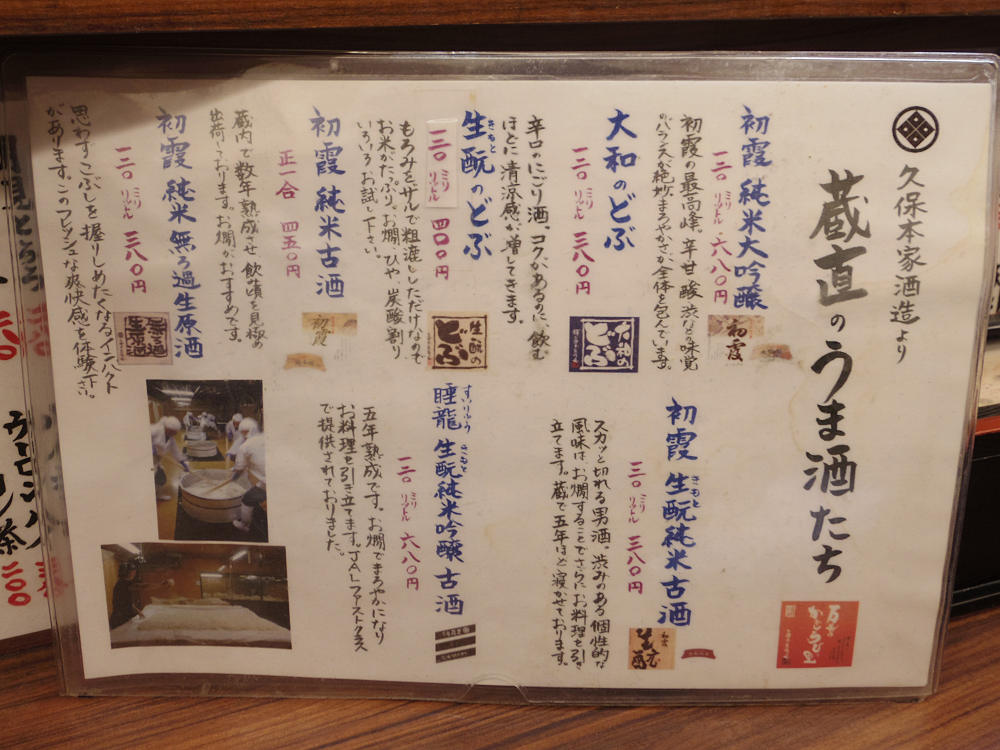 久保本家酒造より
蔵直のうま酒たち
初霞 純米大吟醸
一二〇ミリリットル 六八〇円
初霞の最高峰。辛甘酸渋などの味覚
のバランスが絶妙。まろやかさが全体を包んでいます。
初霞
大和のどぶ
一二〇ミリリットル 三八〇円
辛口のにごり酒。コクがあるのに、飲む
ほどに清涼感が増してきます。
大和の
どぶ
生酛のどぶ
きもと
一三〇ミリリットル 四〇〇円
もろみをザルで粗漉ししただけなので
お米がたっぷり。お燗、ひや、炭酸割り
いろいろお試し下さい。
生酛の
どぶ
初霞 純米古酒
正一合 四五〇円
蔵内で数年熟成させ飲み頃を見極め
出荷しております。お燗がおすすめです。
初霞
初霞 純米 無ろ過生原酒
一二〇ミリリットル 三八〇円
思わずこぶしを握りしめたくなるインパクト
があります。このフレッシュな爽快感を体験下さい。
無ろ過
生原酒
初霞 生酛純米古酒
きもと
一三〇ミリリットル 三八〇円
スカッと切れる男酒。渋みのある個性的な
風味は、お燗することでさらにお料理を引き
立てます。蔵で五年ほど寝かせております。
生酛
睡龍 生酛純米吟醸 古酒
すいりゅう きもと
一二〇ミリリットル 六八〇円
五年熟成です。お燗でまろやかになり
お料理を引き立てます。JALファーストクラス
で提供されておりました。